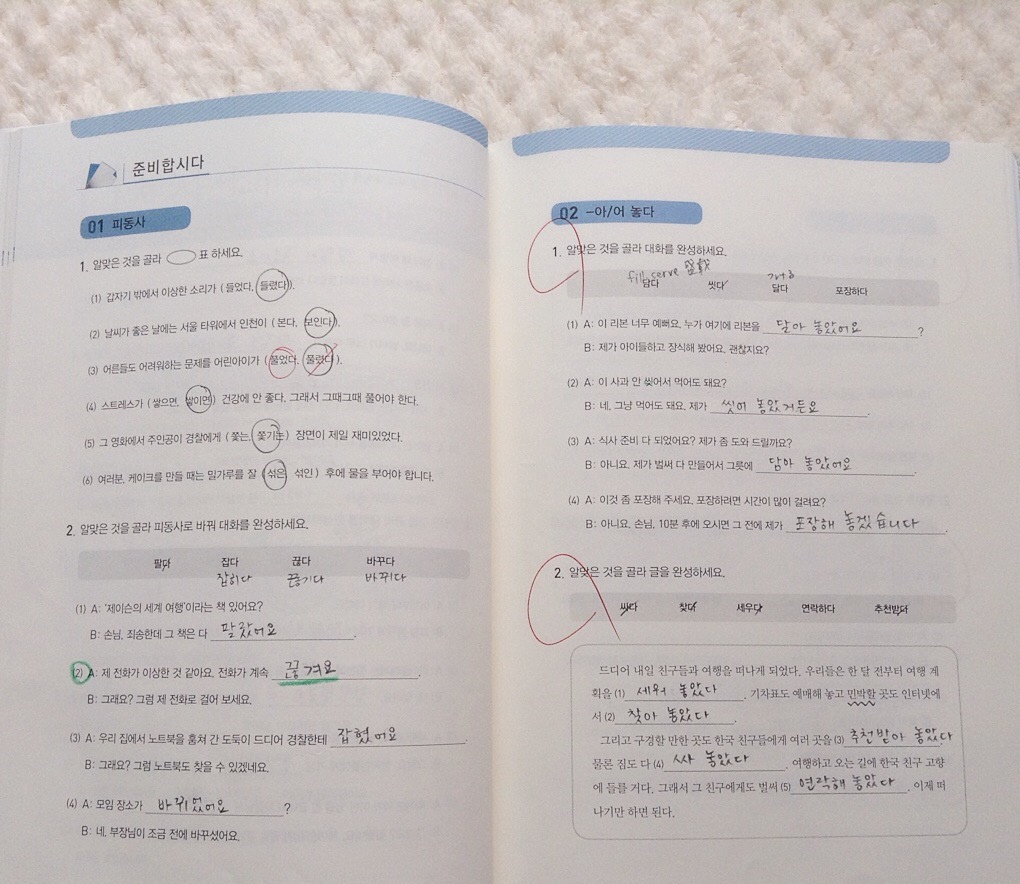 준비합시다
01 피동사
1. 알맞은 것을 골라 표 하세요.
(1) 갑자기 밖에서 이상한 소리가 ( 들었다, 들렸다 ).
(2) 날씨가 좋은 날에는 서울 타워에서 인천이 ( 본다, 보인다 ).
(3) 어른들도 어려워하는 문제를 어린아이가 ( 풀었다, 풀렸다 ).
(4) 스트레스가 ( 쌓으면, 쌓이면 ) 건강에 안 좋다. 그래서 그때그때 풀어야 한다.
(5) 그 영화에서 주인공이 경찰에게 ( 쫓는, 쫓기는 ) 장면이 제일 재미있었다.
(6) 여러분, 케이크를 만들 때는 밀가루를 잘 ( 섞은, 섞인 ) 후에 물을 부어야 합니다.
2. 알맞은 것을 골라 피동사로 바꿔 대화를 완성하세요.
팔다 잡다 끊다 바꾸다
잡히다 끊기다 바뀌다
(1) A: '제이슨의 세계 여행'이라는 책 있어요?
B: 손님, 죄송한데 그 책은 다 팔렸어요.
(2) A: 제 전화가 이상한 것 같아요. 전화가 계속 끊겨요.
B: 그래요? 그럼 제 전화로 걸어 보세요.
(3) A: 우리 집에서 노트북을 훔쳐 간 도둑이 드디어 경찰한테 잡혔어요.
B: 그래요? 그럼 노트북도 찾을 수 있겠네요.
(4) A: 모임 장소가 바뀌었어요?
B: 네, 부장님이 조금 전에 바꾸셨어요.
02 -아/어 놓다
1. 알맞은 것을 골라 대화를 완성하세요.
fill, serve
담다 씻다 달다 포장하다
(1) A: 이 리본 너무 예뻐요. 누가 여기에 리본을 달아 놓았어요?
B: 제가 아이들하고 장식해 봤어요. 괜찮지요?
(2) A: 이 사과 안 씻어서 먹어도 돼요?
B: 네, 그냥 먹어도 돼요. 제가 씻어 놓았거든요.
(3) A: 식사 준비 다 되었어요? 제가 좀 도와 드릴까요?
B: 아니요, 제가 벌써 다 만들어서 그릇에 담아 놓았어요.
(4) A: 이것 좀 포장해 주세요. 포장하려면 시간이 많이 걸려요?
B: 아니요, 손님. 10분 후에 오시면 그 전에 제가 포장해 놓겠습니다.
2. 알맞은 것을 골라 글을 완성하세요.
싸다 찾다 세우다 연락하다 추천받다
드디어 내일 친구들과 여행을 떠나게 되었다. 우리들은 한 달 전부터 여행 계
획을 (1) 세워 놓았다. 기차표도 예매해 놓고 민박할 곳도 인터넷에
서 (2) 찾아 놓았다.
그리고 구경할 만한 곳도 한국 친구들에게 여러 곳을 (3) 추천받아 놓았다
물론 짐도 다 (4) 싸 놓았다. 여행하고 오는 길에 한국 친구 고향
에 들를 거다. 그래서 그 친구에게도 벌써 (5) 연락해 놓았다. 이제 떠
나기만 하면 된다.